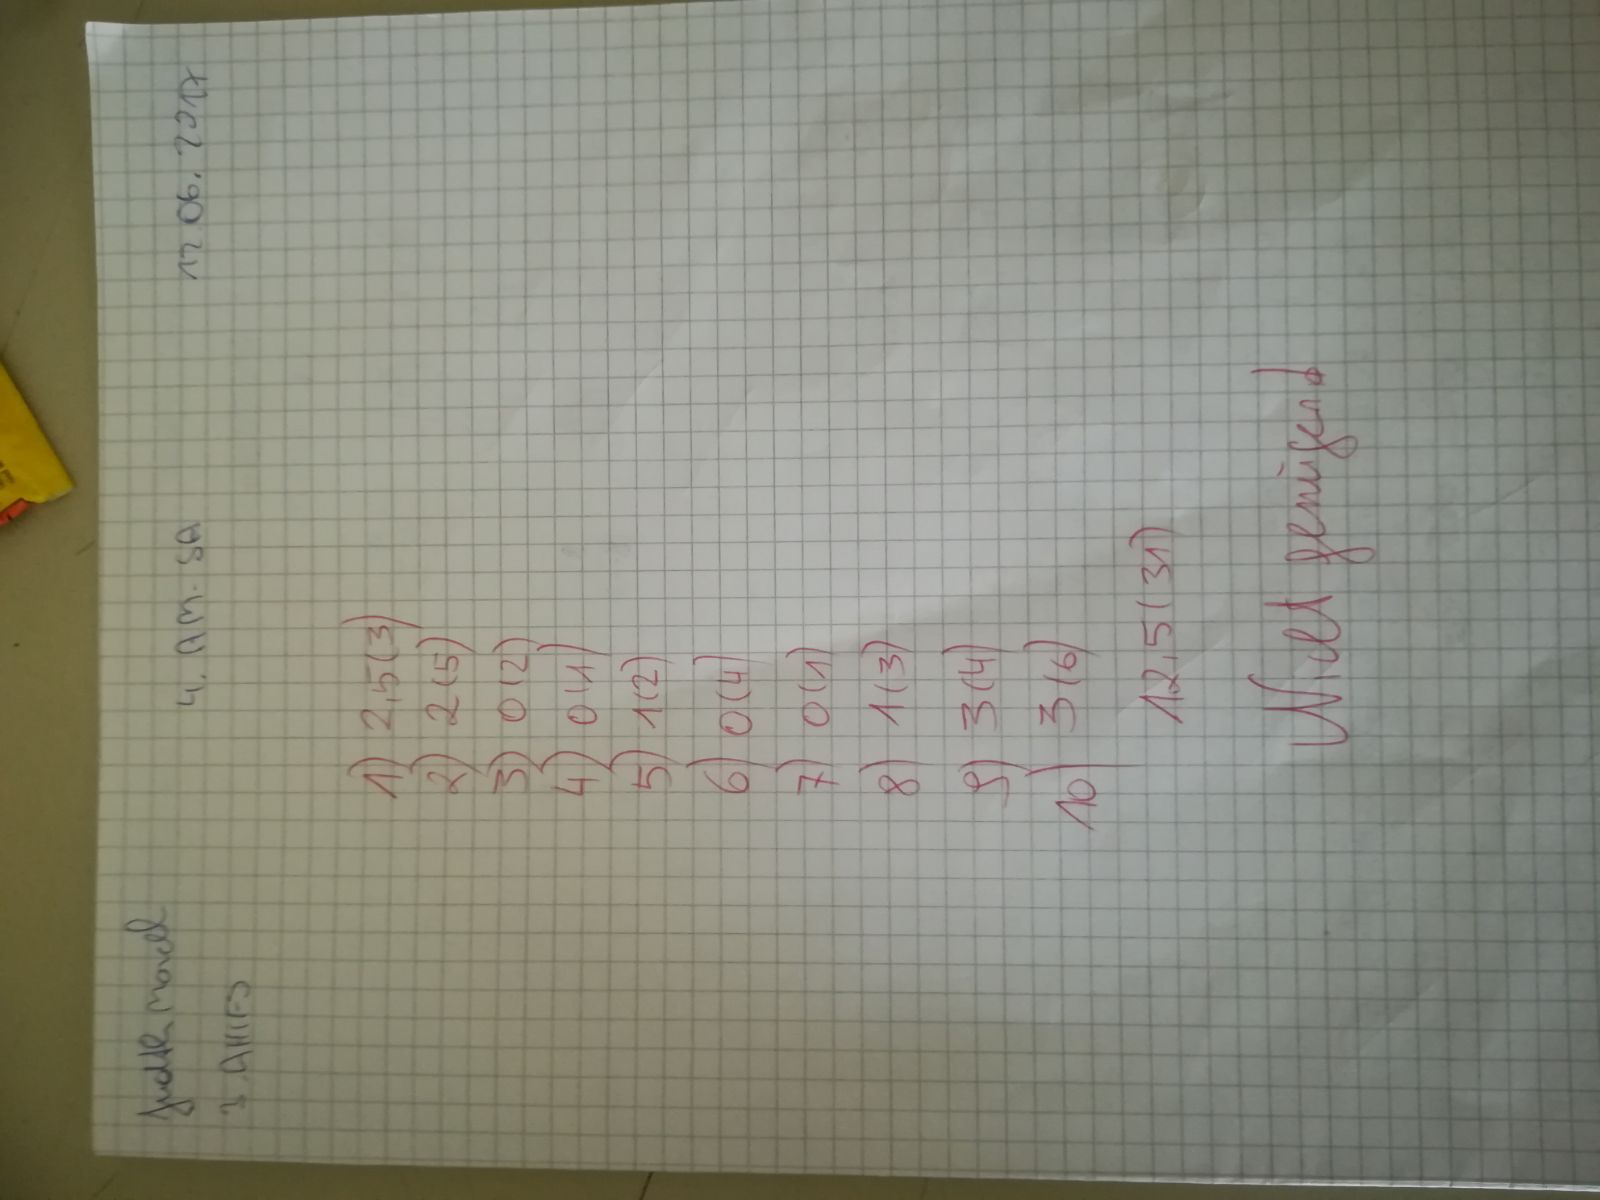 Judth Marcel
4. AM. SA
12.06.2017
3. AHIFS
1) 2,5(3)
2) 2(5)
3) 0(2)
4) 0(1)
5) 1(2)
6) 0(4)
7) 0(1)
8) 1(3)
9) 3(4)
10) 3(6)
12,5(31)
Nicht genügend